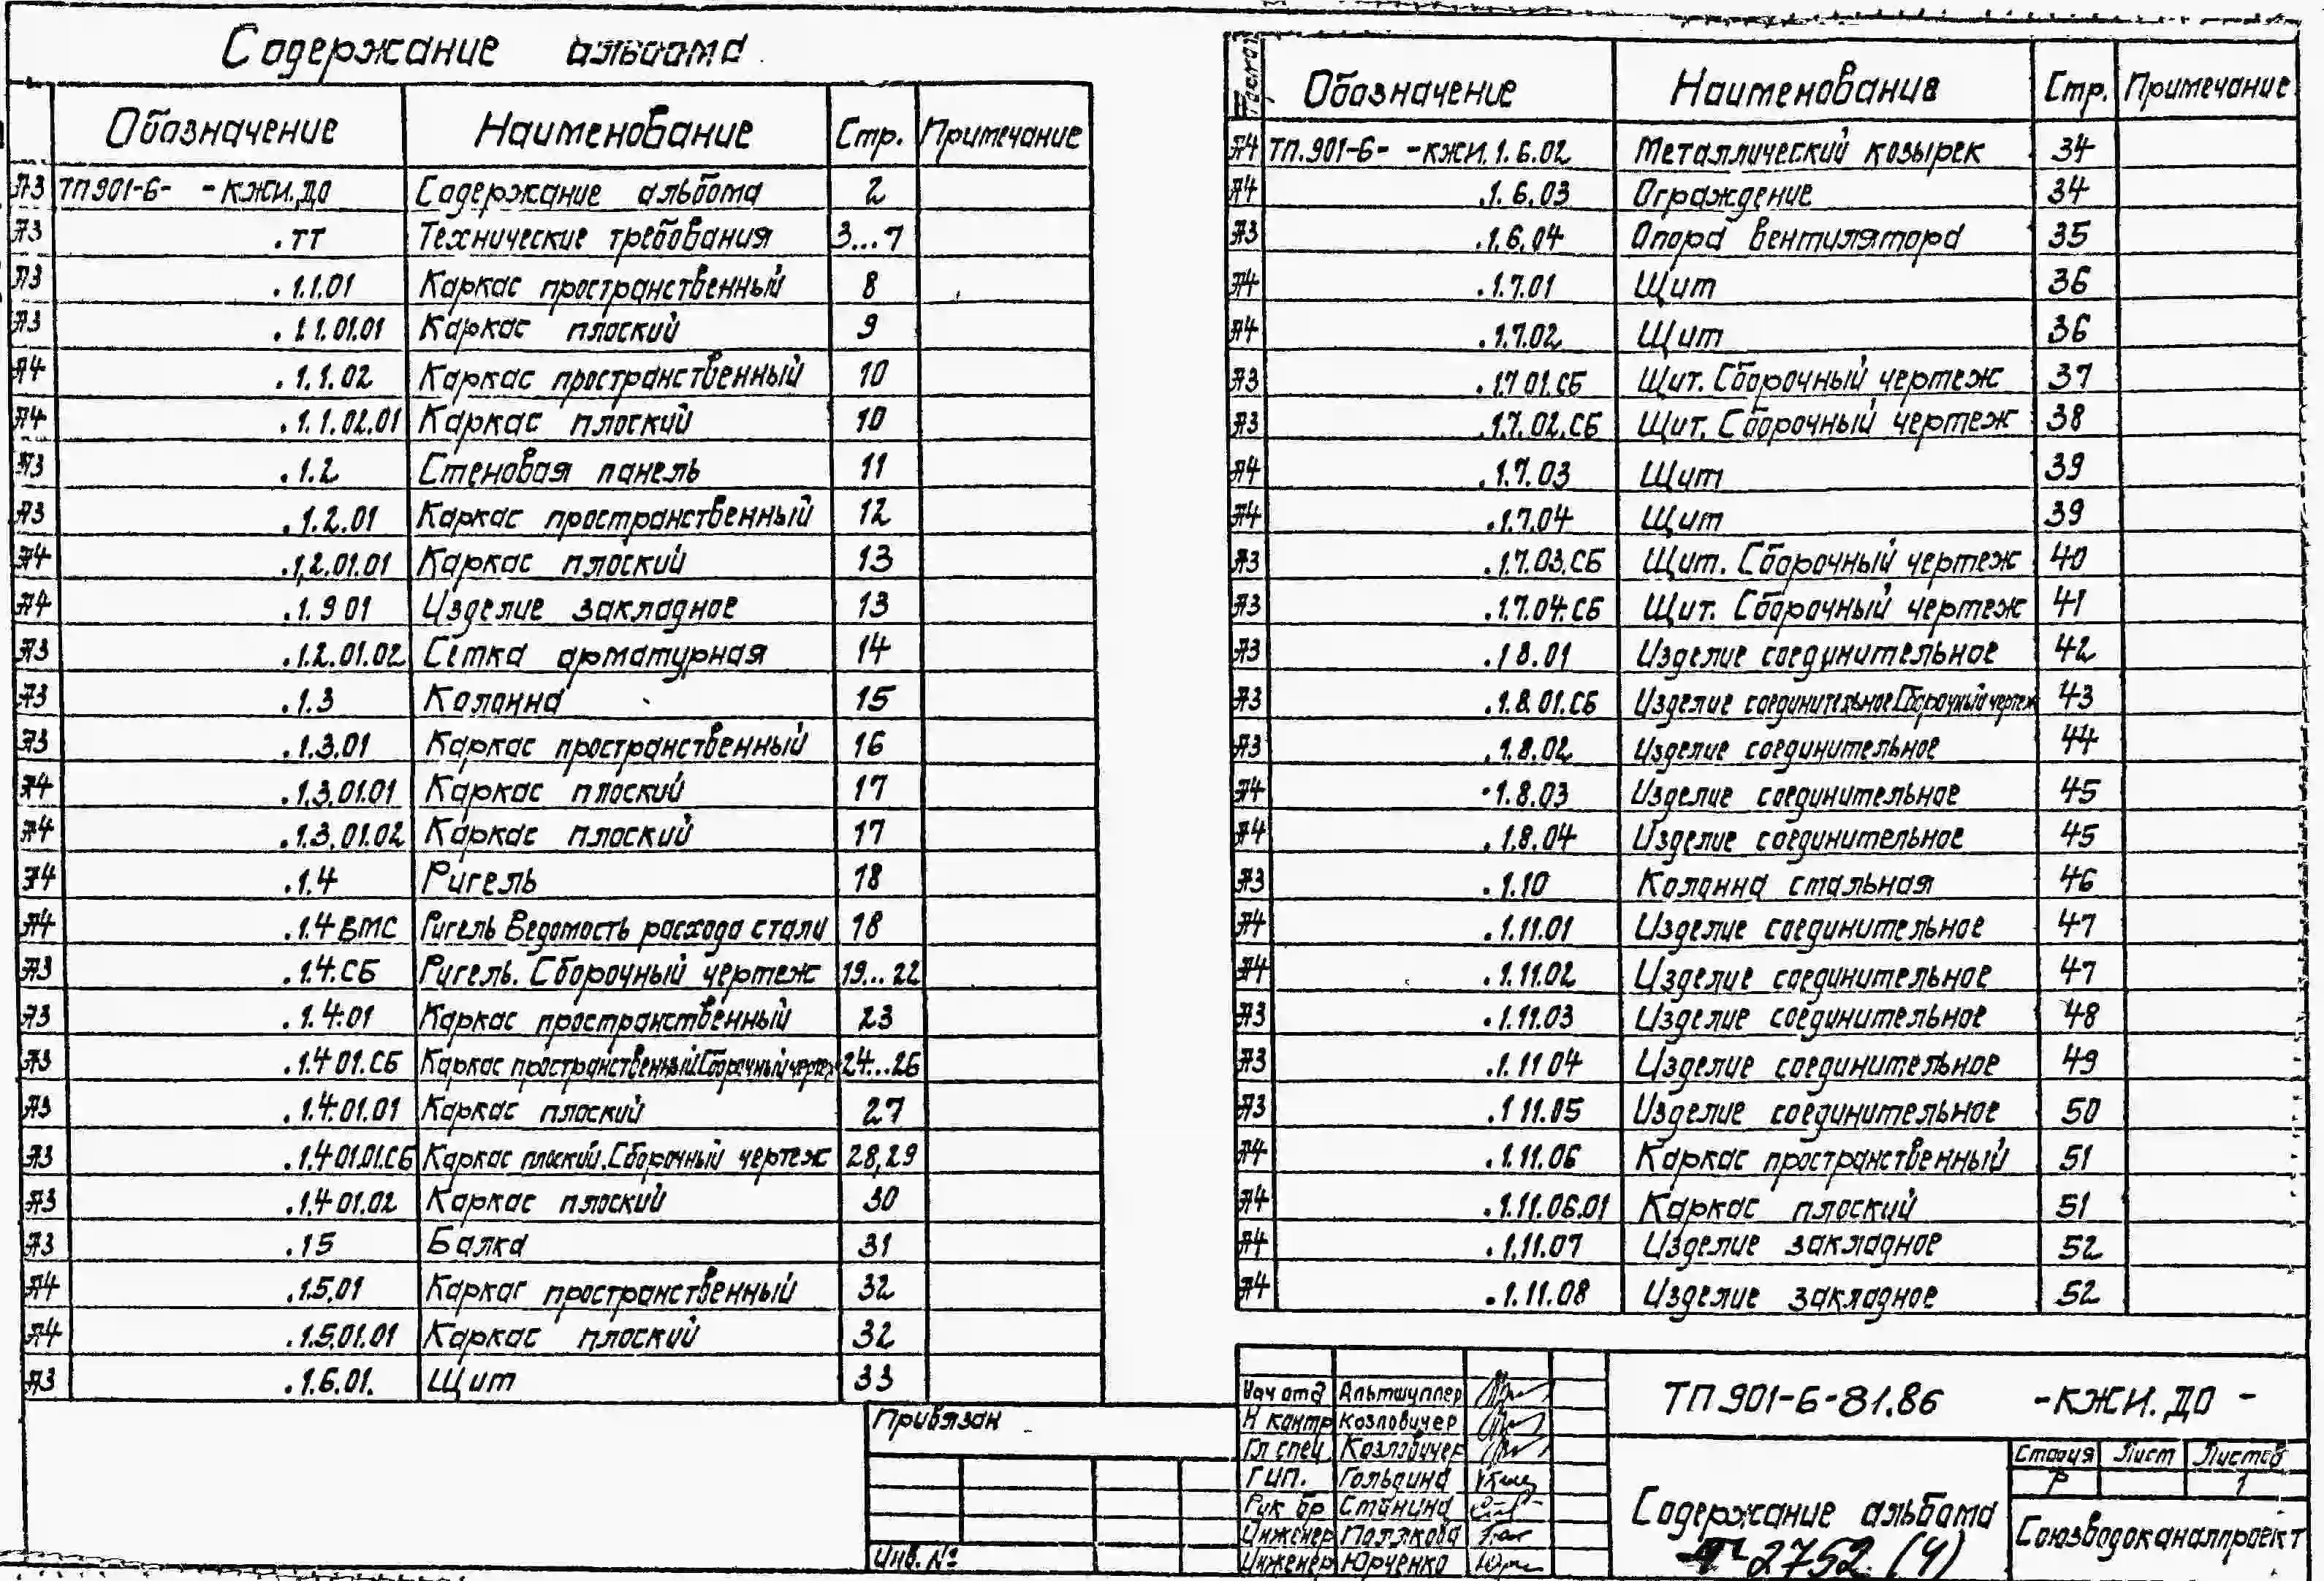 Содержание альбома
Обозначение Наименование Стр. Примечание
А3 ТП 901-6- -КЖИ.ДО Содержание альбома 2
А3 .ТТ Технические требования 3...7
А3 .1.1.01 Каркас пространственный 8
А3 .1.1.01.01 Каркас плоский 9
А4 .1.1.02 Каркас пространственный 10
А4 .1.1.02.01 Каркас плоский 10
А3 .1.2 Стеновая панель 11
А3 .1.2.01 Каркас пространственный 12
А4 .1.2.01.01 Каркас плоский 13
А4 .1.9 01 Изделие закладное 13
А3 .1.2.01.02 Сетка арматурная 14
А3 .1.3 Колонна 15
А3 .1.3.01 Каркас пространственный 16
А4 .1.3.01.01 Каркас плоский 17
А4 .1.3.01.02 Каркас плоский 17
А4 .1.4 Ригель 18
А4 .1.4 ВМС Ригель Ведомость расхода стали 18
А3 .1.4.СБ Ригель. Сборочный чертеж 19...22
А3 .1.4.01 Каркас пространственный 23
А3 .1.4 01.СБ Каркас пространственный.Сборочный чертеж 24...26
А3 .1.4.01.01 Каркас плоский 27
А3 .1.4 01.01.СБ Каркас плоский.Сборочный чертеж 28,29
А3 .1.4 01.02 Каркас плоский 30
А3 .1.5 Балка 31
А4 .1.5.01 Каркас пространственный 32
А4 .1.5.01.01 Каркас плоский 32
А3 .1.6.01. Щит 33
Формат Обозначение Наименования Стр. Примечание
А4 ТП.901-6- -КЖИ.1.6.02 Металлический козырек 34
А4 .1.6.03 Ограждение 34
А3 .1.6.04 Опора вентилятора 35
А4 .1.7.01 Щит 36
А4 .1.7.02 Щит 36
А3 .1.7 01.СБ Щит. Сборочный чертеж 37
А3 .1.7.02.СБ Щит. Сборочный чертеж 38
А4 .1.7.03 Щит 39
А4 .1.7.04 Щит 39
А3 .1.7.03.СБ Щит. Сборочный чертеж 40
А3 .1.7.04.СБ Щит. Сборочный чертеж 41
А3 .1 8.01 Изделие соединительное 42
А3 .1.8.01.СБ Изделие соединительное.Сборочный чертеж 43
А3 .1.8.02 Изделие соединительное 44
А4 .1.8.03 Изделие соединительное 45
А4 .1.8.04 Изделие соединительное 45
А3 .1.10 Колонна стальная 46
А4 .1.11.01 Изделие соединительное 47
А4 .1.11.02 Изделие соединительное 47
А3 .1.11.03 Изделие соединительное 48
А3 .1.11 04 Изделие соединительное 49
А3 .1 11.05 Изделие соединительное 50
А4 .1.11.06 Каркас пространственный 51
А4 .1.11.06.01 Каркас плоский 51
А4 .1.11.07 Изделие закладное 52
А4 .1.11.08 Изделие закладное 52
Привязан
Инв. №
Нач отд Альтшуллер
Н контр Козловичер
Гл спец Козловичер
ГИП. Гольдина
Рук бр Станина
Инженер Полякова
Инженер Юрченко
ТП 901-6-81.86 -КЖИ.ДО -
Содержание альбома
Стадия Лист Листов
Р 1
Союзводоканалпроект
2752 (4)